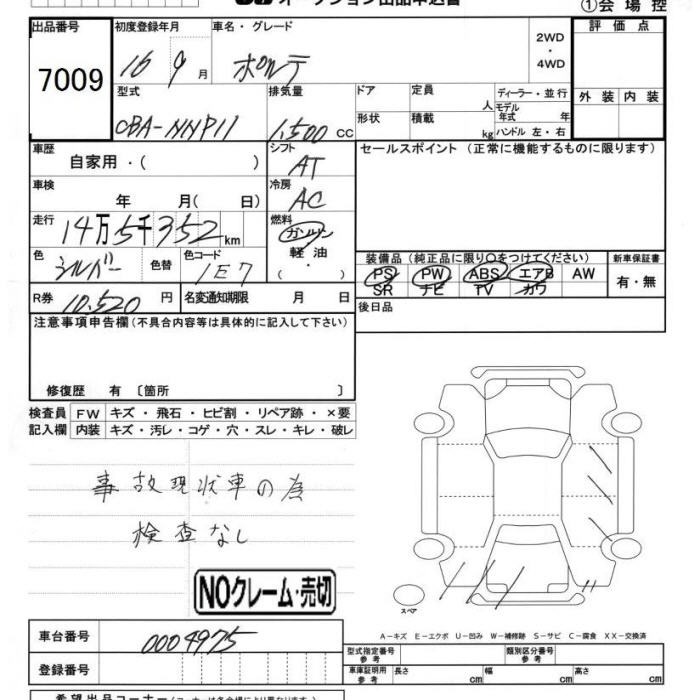 オークション出品申込書
①会 場 控
出品番号
7009
初度登録年月
16 9 月
車名・グレード
ポルテ
2WD
・
4WD
評 価 点
外 装 内 装
型式
CBA-NNP11
排気量
1,500 CC
ドア
定員
人
形状
積載
kg
ディーラー・並 行
モデル
年式 年
ハンドル 左・右
車歴
自家用・( )
シフト
AT
セールスポイント (正常に機能するものに限ります)
車検
年 月( 日)
冷房
AC
走行
14万5千352 km
燃料
ガソリン
軽 油
・
( )
色
シルバー
色替
色コード
1E7
装備品 (純正品に限り○をつけてください)
PS PW ABS エアB AW
SR ナビ TV カワ
新車保証書
有・無
R券
10.520 円
名変通知期限 月 日
後日品
注意事項申告欄(不具合内容等は具体的に記入して下さい)
修復歴 有 〔箇所 〕
検査員
記入欄
FW キズ・飛石・ヒビ割・リペア跡・×要
内装 キズ・汚レ・コゲ・穴・スレ・キレ・破レ
事故現状車の為
検査なし
NOクレーム・売切
スペア
A−キズ E−エクボ U−凹み W−補修跡 S−サビ C−腐食 XX−交換済
車台番号
0004975
登録番号
型式指定番号
参 考
類別区分番号
参 考
車庫証明用
参 考
長さ cm 幅 cm 高さ cm
希望出品コーナー